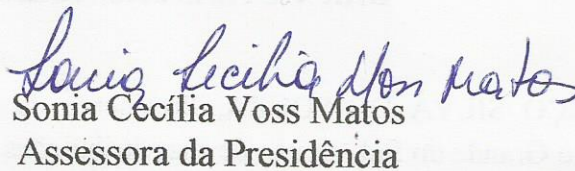 Sonia Cecilia Voss Matos
Sonia Cecília Voss Matos
Assessora da Presidência